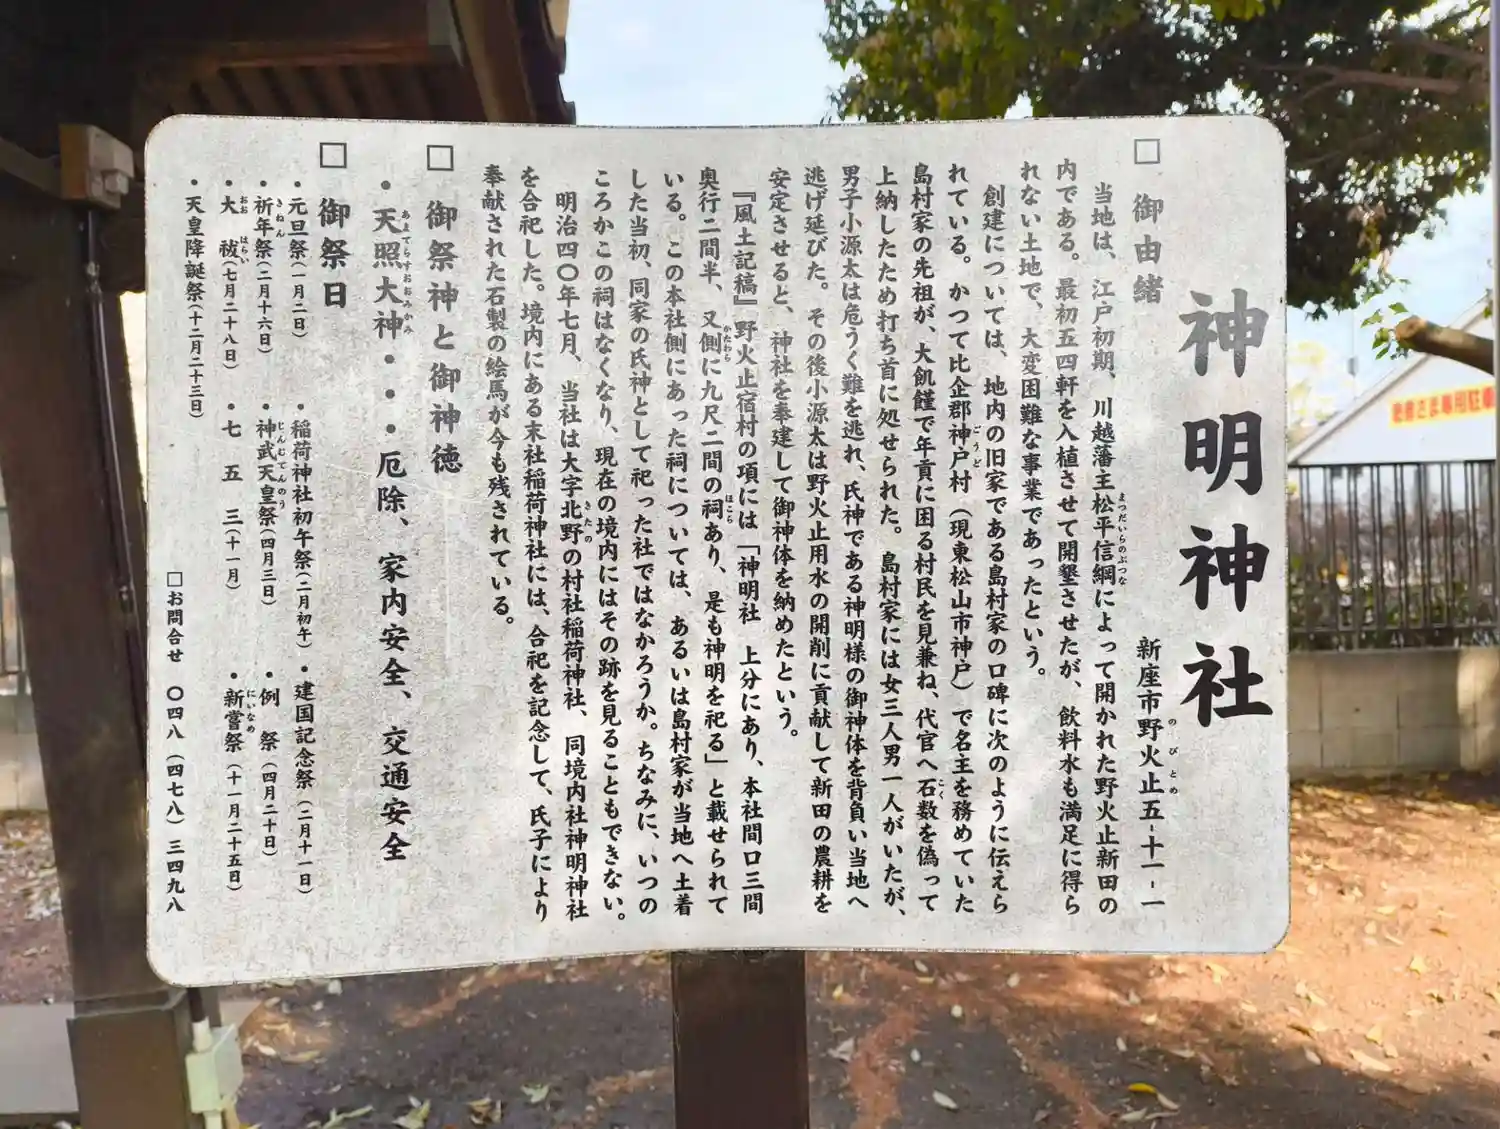 神明神社
新座市野火止五-十一-一
のびとめ
□ 御由緒
当地は、江戸初期、川越藩主松平信綱によって開かれた野火止新田の
まつだいらのぶつな
内である。最初五四軒を入植させて開墾させたが、飲料水も満足に得ら
れない土地で、大変困難な事業であったという。
創建については、地内の旧家である島村家の口碑に次のように伝えら
れている。かつて比企郡神戸村（現東松山市神戸）で名主を務めていた
ごうど
島村家の先祖が、大飢饉で年貢に困る村民を見兼ね、代官へ石数を偽って
こく
上納したため打ち首に処せられた。島村家には女三人男一人がいたが、
男子小源太は危うく難を逃れ、氏神である神明様の御神体を背負い当地へ
逃げ延びた。その後小源太は野火止用水の開削に貢献して新田の農耕を
安定させると、神社を奉建して御神体を納めたという。
『風土記稿』野火止宿村の項には「神明社 上分にあり、本社間口三間
奥行二間半、又側に九尺二間の祠あり、是も神明を祀る」と載せられて
かたわら
ほこら
いる。この本社側にあった祠については、あるいは島村家が当地へ土着
した当初、同家の氏神として祀った社ではなかろうか。ちなみに、いつの
ころかこの祠はなくなり、現在の境内にはその跡を見ることもできない。
明治四〇年七月、当社は大字北野の村社稲荷神社、同境内社神明神社
きたの
を合祀した。境内にある末社稲荷神社には、合祀を記念して、氏子により
奉献された石製の絵馬が今も残されている。
□ 御祭神と御神徳
・天照大神・・・厄除、家内安全、交通安全
あまてらすおおみかみ
□ 御祭日
・元旦祭（一月二日） ・稲荷神社初午祭（二月初午） ・建国記念祭（二月十一日）
・祈年祭（二月十六日） ・神武天皇祭（四月三日） ・例 祭（四月二十日）
きねん
じんむてんのう
・大 祓（七月二十八日） ・七 五 三（十一月） ・新嘗祭（十一月二十五日）
おお はらい
にいなめ
・天皇降誕祭（十二月二十三日）
□お問合せ 〇四八（四七八）三四九八